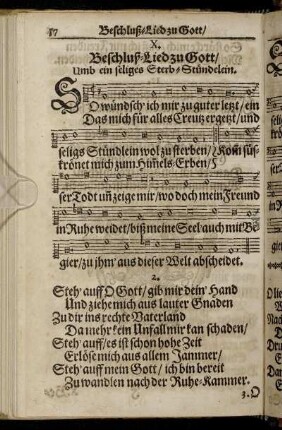 57 Beschluß-Lied zu Gott/
X.
Beschluß-Lied zu Gott/
Umb ein seliges Sterb-Stündelein.
SO wündsch ich mir zu guter letzt/ ein
Das mich für alles Creutz ergetzt/ und
seligs Stündlein wol zu sterben/ Kom̃ süs-
krönet mich zum Him̃els-Erben/
ser Todt uñ zeige mir/ wo doch mein Freund
in Ruhe weidet/ biß meine Seel auch mit Be-
gier/ zu jhm aus dieser Welt abscheidet.
2.
Steh auff O Gott/ gib mir dein Hand
Und ziehe mich aus lauter Gnaden
Zu dir ins rechte Vaterland
Da mehr kein Unfall mir kan schaden/
Steh auff/ es ist schon hohe Zeit
Erlöse mich aus allem Jammer/
Steh auff mein Gott/ ich bin bereit
Zu wandlen nach der Ruhe-Kammer.
3. O